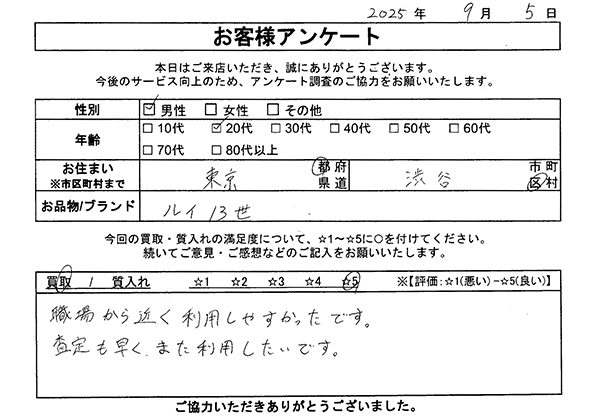 2025年 9月 5日
お客様アンケート
本日はご来店いただき、誠にありがとうございます。
今後のサービス向上のため、アンケート調査のご協力をお願いいたします。
性別 ☑男性 □女性 □その他
年齢 □10代 ☑20代 □30代 □40代 □50代 □60代
□70代 □80代以上
お住まい ※市区町村まで 東京 都府県道 渋谷 市町区村
お品物/ブランド ルイ13世
今回の買取・質入れの満足度について、☆1～☆5に○を付けてください。
続いてご意見・ご感想などのご記入をお願いいたします。
買取 / 質入れ ☆1 ☆2 ☆3 ☆4 ☆5 ※【評価:☆1(悪い)-☆5(良い)】
職場から近く利用しやすかったです。
査定も早く、また利用したいです。
ご協力いただきありがとうございました。